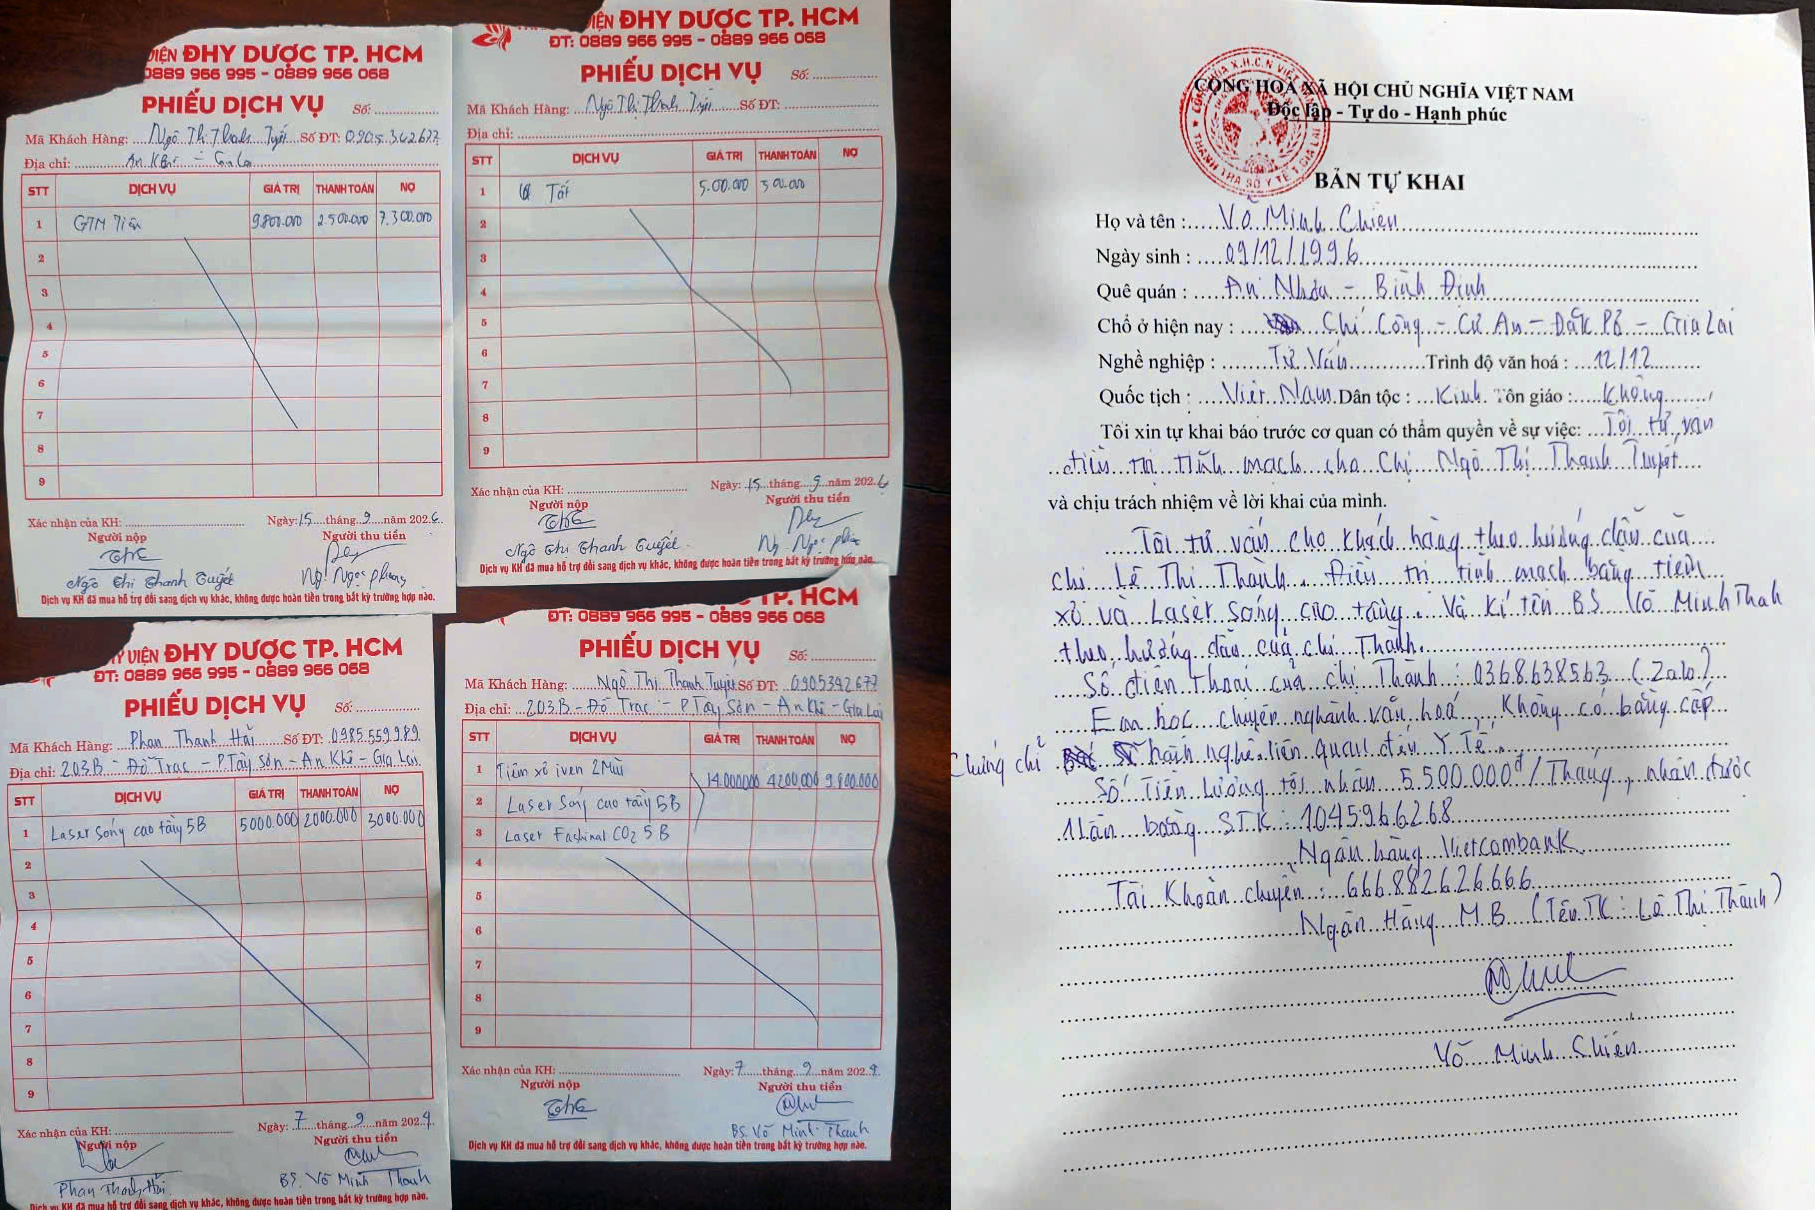 VIỆN ĐHY DƯỢC TP. HCM
0889 966 995 - 0889 966 068
PHIẾU DỊCH VỤ Số:
Mã Khách Hàng: Ngô Thị Thanh Tuyết Số ĐT: 0905.342.677
Địa chỉ: An Khê - Gia Lai
STT DỊCH VỤ GIÁ TRỊ THANH TOÁN NỢ
1 GTM Tiền 9.800.000 2.500.000 7.300.000
2
3
4
5
6
7
8
9
Xác nhận của KH: Ngày: 15 tháng 9 năm 2024
Người nộp Người thu tiền
Ngô Thi Thanh Tuyết Ng! Ngọc Phương
Dịch vụ KH đã mua hỗ trợ đổi sang dịch vụ khác, không được hoàn tiền trong bất kỳ trường hợp nào.
VIỆN ĐHY DƯỢC TP. HCM
ĐT: 0889 966 995 - 0889 966 068
PHIẾU DỊCH VỤ Số:
Mã Khách Hàng: Ngô Thị Thanh Tuyết Số ĐT:
Địa chỉ:
STT DỊCH VỤ GIÁ TRỊ THANH TOÁN NỢ
1 Tất 500.000 500.000
2
3
4
5
6
7
8
9
Xác nhận của KH: Ngày: 15 tháng 9 năm 2024
Người nộp Người thu tiền
Ngô Thi Thanh Tuyết Ng! Ngọc
Dịch vụ KH đã mua hỗ trợ đổi sang dịch vụ khác, không được hoàn tiền trong bất kỳ trường hợp nào.
VIỆN ĐHY DƯỢC TP. HCM
ĐT: 0889 966 995 - 0889 966 068
PHIẾU DỊCH VỤ Số:
Mã Khách Hàng: Phan Thanh Hải Số ĐT: 0985.559.989
Địa chỉ: 203B - Đỗ Trạc - P.Tây Sơn - An Khê - Gia Lai
STT DỊCH VỤ GIÁ TRỊ THANH TOÁN NỢ
1 Laser sóng cao tầng 5B 5000.000 2000.000 3000.000
2
3
4
5
6
7
8
9
Xác nhận của KH: Ngày: 7 tháng 9 năm 2024
Người nộp Người thu tiền
Phan Thanh Hải BS. Võ Minh Thanh
Dịch vụ KH đã mua hỗ trợ đổi sang dịch vụ khác, không được hoàn tiền trong bất kỳ trường hợp nào.
DƯỢC TP. HCM
ĐT: 0889 966 995 - 0889 966 068
PHIẾU DỊCH VỤ Số:
Mã Khách Hàng: Ngô Thị Thanh Tuyết Số ĐT: 0905342677
Địa chỉ: 203B - Đỗ Trạc - P.Tây Sơn - An Khê - Gia Lai
STT DỊCH VỤ GIÁ TRỊ THANH TOÁN NỢ
1 Tiêm xơ iven 2Mũi 14.000000 4200.000 9.800.000
2 Laser Sóng cao tầng 5B
3 Laser Fashinal CO2 5B
4
5
6
7
8
9
Xác nhận của KH: Ngày: 7 tháng 9 năm 2024
Người nộp Người thu tiền
BS. Võ Minh Thanh
Dịch vụ KH đã mua hỗ trợ đổi sang dịch vụ khác, không được hoàn tiền trong bất kỳ trường hợp nào.
CỘNG HOÀ XÃ HỘI CHỦ NGHĨA VIỆT NAM
Độc lập - Tự do - Hạnh phúc
CỘNG HÒA X.H.C.N VIỆT NAM
THANH TRA SỞ Y TẾ T. GIA LAI
BẢN TỰ KHAI
Họ và tên : Võ Minh Chiến
Ngày sinh : 09/12/1996
Quê quán : An Nhơn - Bình Định
Chổ ở hiện nay : Chí Công - Cư An - Đăk Pơ - Gia Lai
Nghề nghiệp : Tư Vấn Trình độ văn hoá : 12/12
Quốc tịch : Việt Nam Dân tộc : Kinh Tôn giáo : Không
Tôi xin tự khai báo trước cơ quan có thẩm quyền về sự việc: Tôi tư vấn
điều trị tĩnh mạch cho Chị Ngô Thị Thanh Tuyết
và chịu trách nhiệm về lời khai của mình.
Tôi tư vấn cho khách hàng theo hướng dẫn của
chị Lê Thị Thành. Điều trị tĩnh mạch bằng tiêm
xơ và Laser sóng cao tầng. Và kí tên BS Võ Minh Thah
theo hướng dẫn của chị Thành.
Số điện thoại của chị Thành : 0368.638563 (Zalo)
Em học chuyên nghành văn hoá, Không có bằng cấp
Chứng chỉ hành nghề liên quan đến Y Tế.
Số Tiền Lương tôi nhận 5.500.000đ/Tháng, nhận được
1 lần bằng STK : 1045966268
Ngân hàng Vietcombank
Tài Khoản chuyển : 666882626666
Ngân Hàng MB (Tên TK : Lê Thị Thành)
Võ Minh Chiến